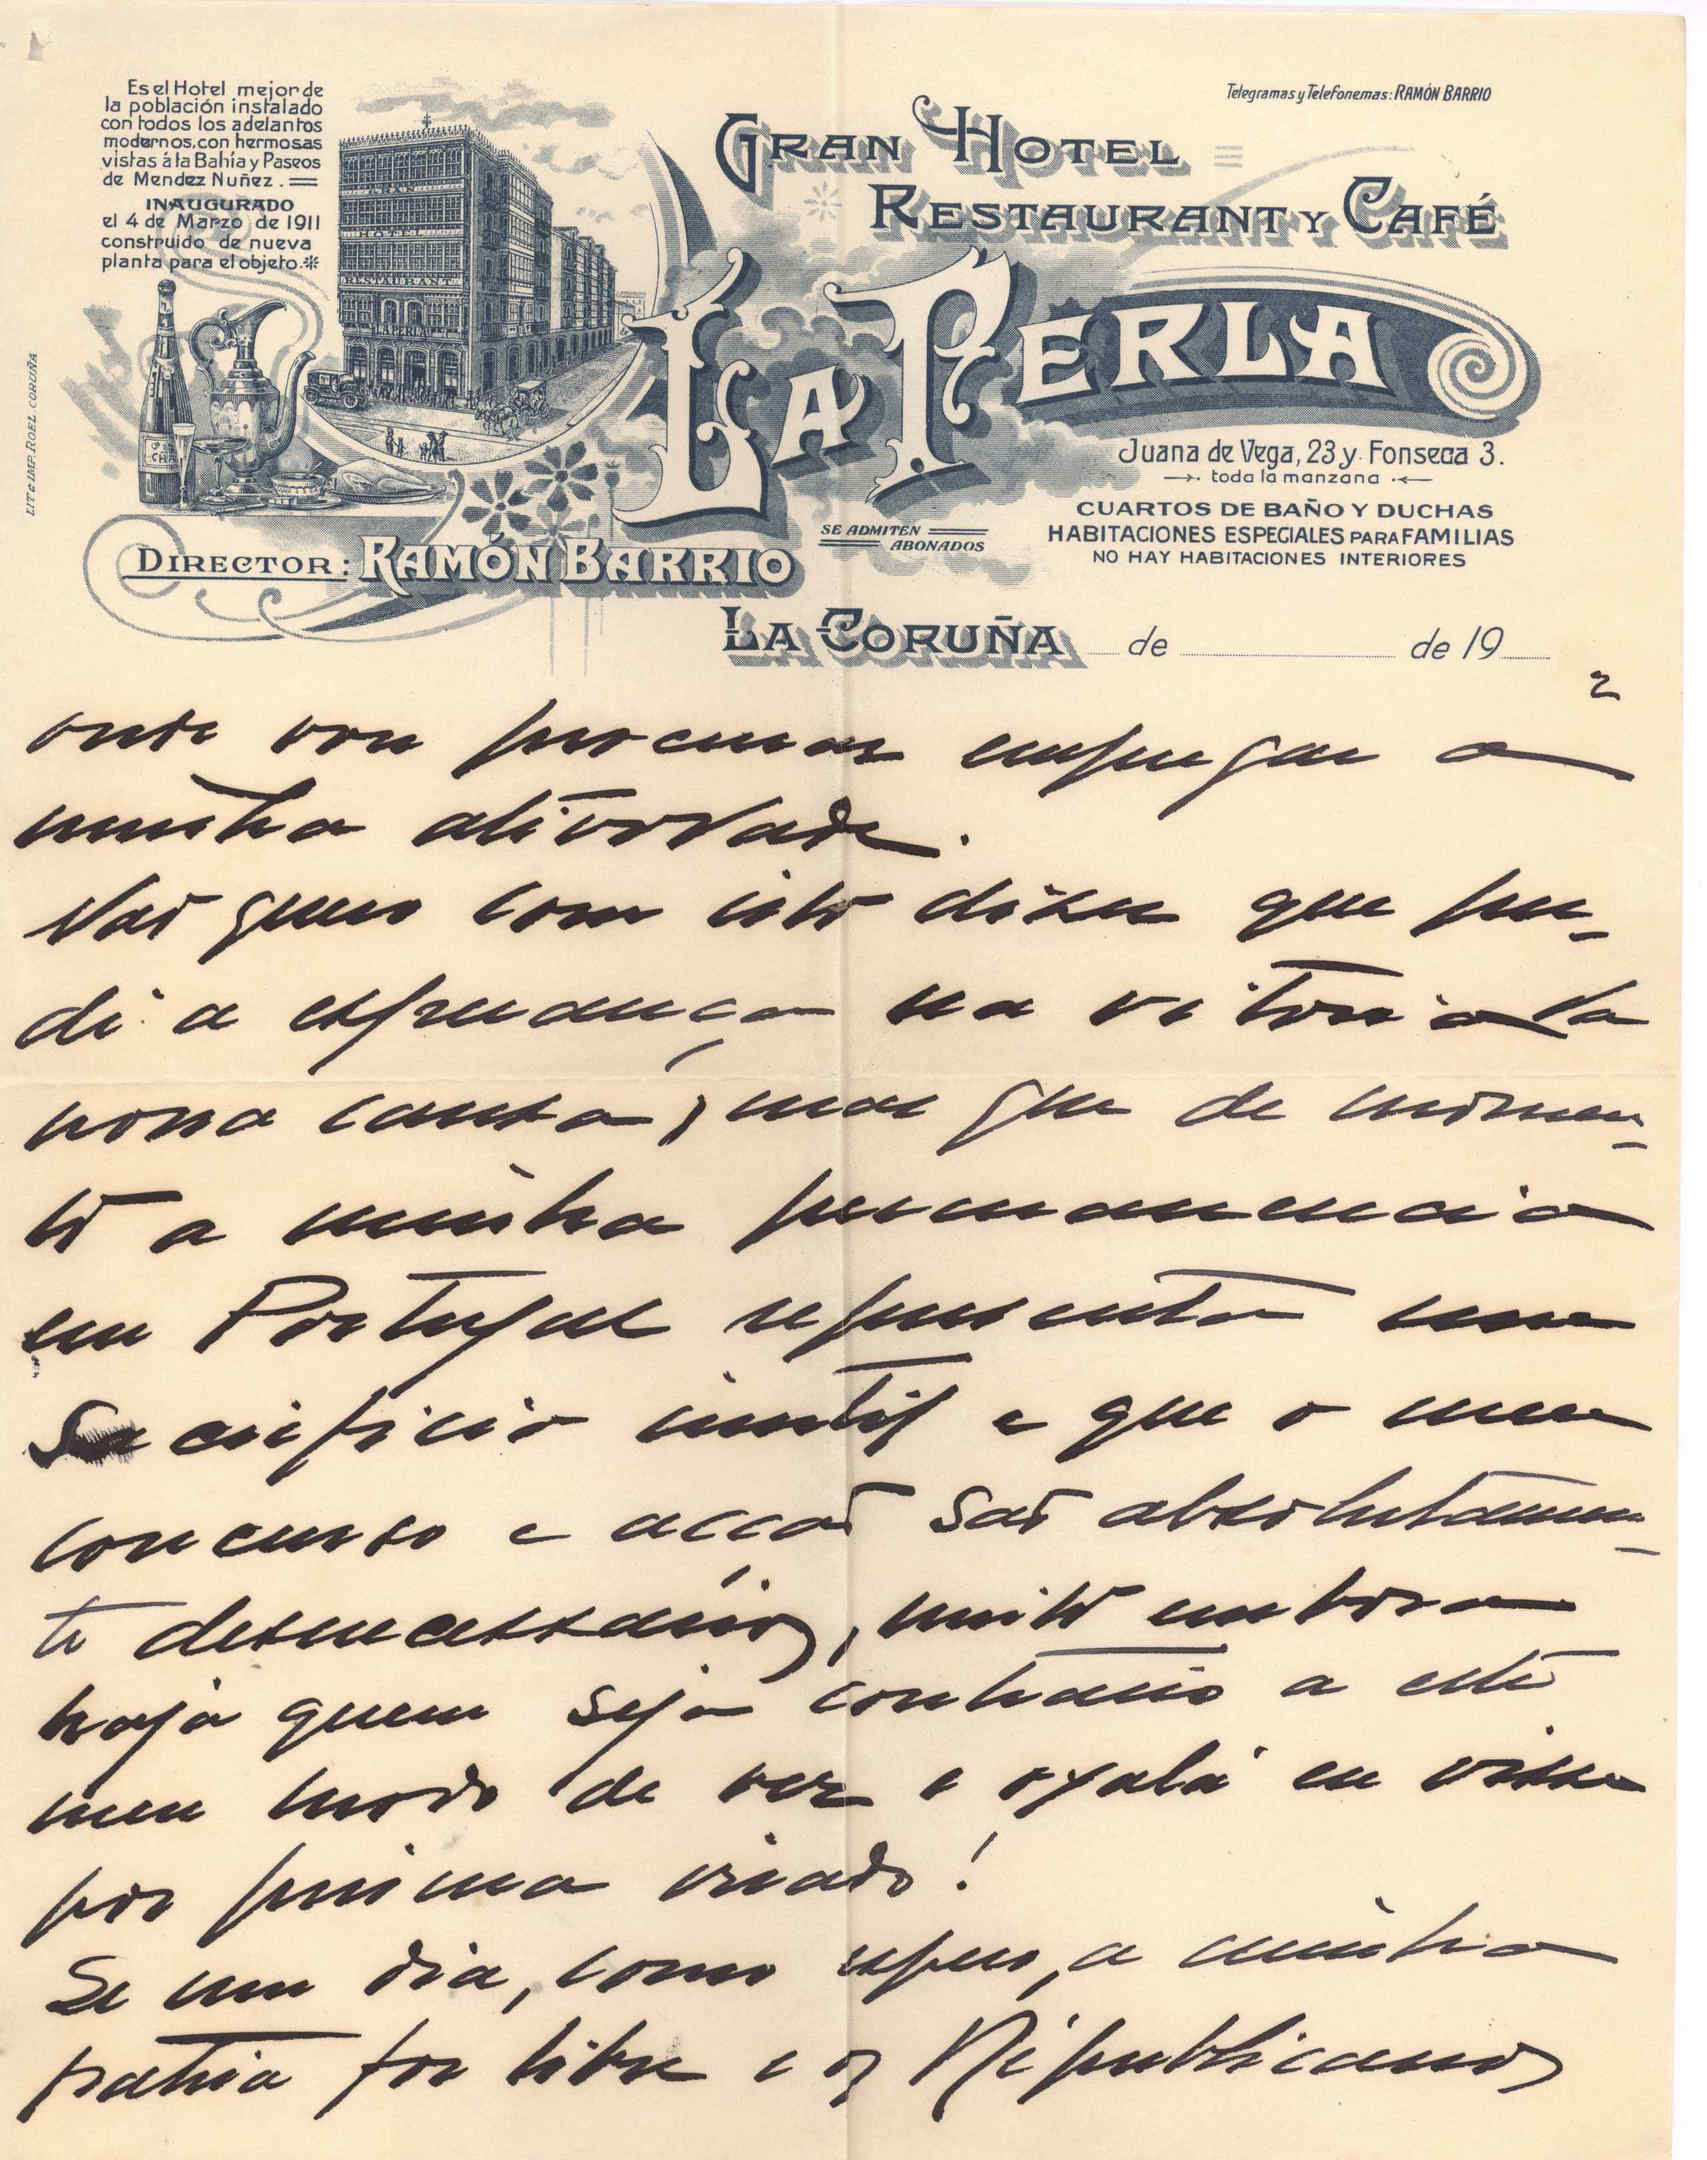 Es el Hotel mejor de
la población instalado
con todos los adelantos
modernos, con hermosas
vistas á la Bahía y Paseos
de Mendez Nuñez.
INAUGURADO
el 4 de Marzo de 1911
construido de nueva
planta para el objeto.
LIT e IMP. ROEL CORUÑA
GRAN HOTEL
RESTAURANT
LA PERLA
Telegramas y Telefonemas: RAMÓN BARRIO
GRAN HOTEL
RESTAURANT Y CAFÉ
LA PERLA
Juana de Vega, 23 y Fonseca 3.
toda la manzana
CUARTOS DE BAÑO Y DUCHAS
HABITACIONES ESPECIALES PARA FAMILIAS
NO HAY HABITACIONES INTERIORES
SE ADMITEN
ABONADOS
DIRECTOR: RAMÓN BARRIO
LA CORUÑA de de 19
2
onde vou procurar empregar a
minha atividade.
Não quero com isto dizer que per-
di a esperança na vitoria da
nossa causa, mas que de momen-
to a minha permanencia
em Portugal representa um
sacrificio inutil e que o meu
concurso e acção são absolutamen-
te desnecessarios, muito embora
haja quem seja contrario a este
meu modo de ver e oxalá eu visse
por prisma errado!
Se um dia, como espero, a minha
patria for livre e os Republicanos